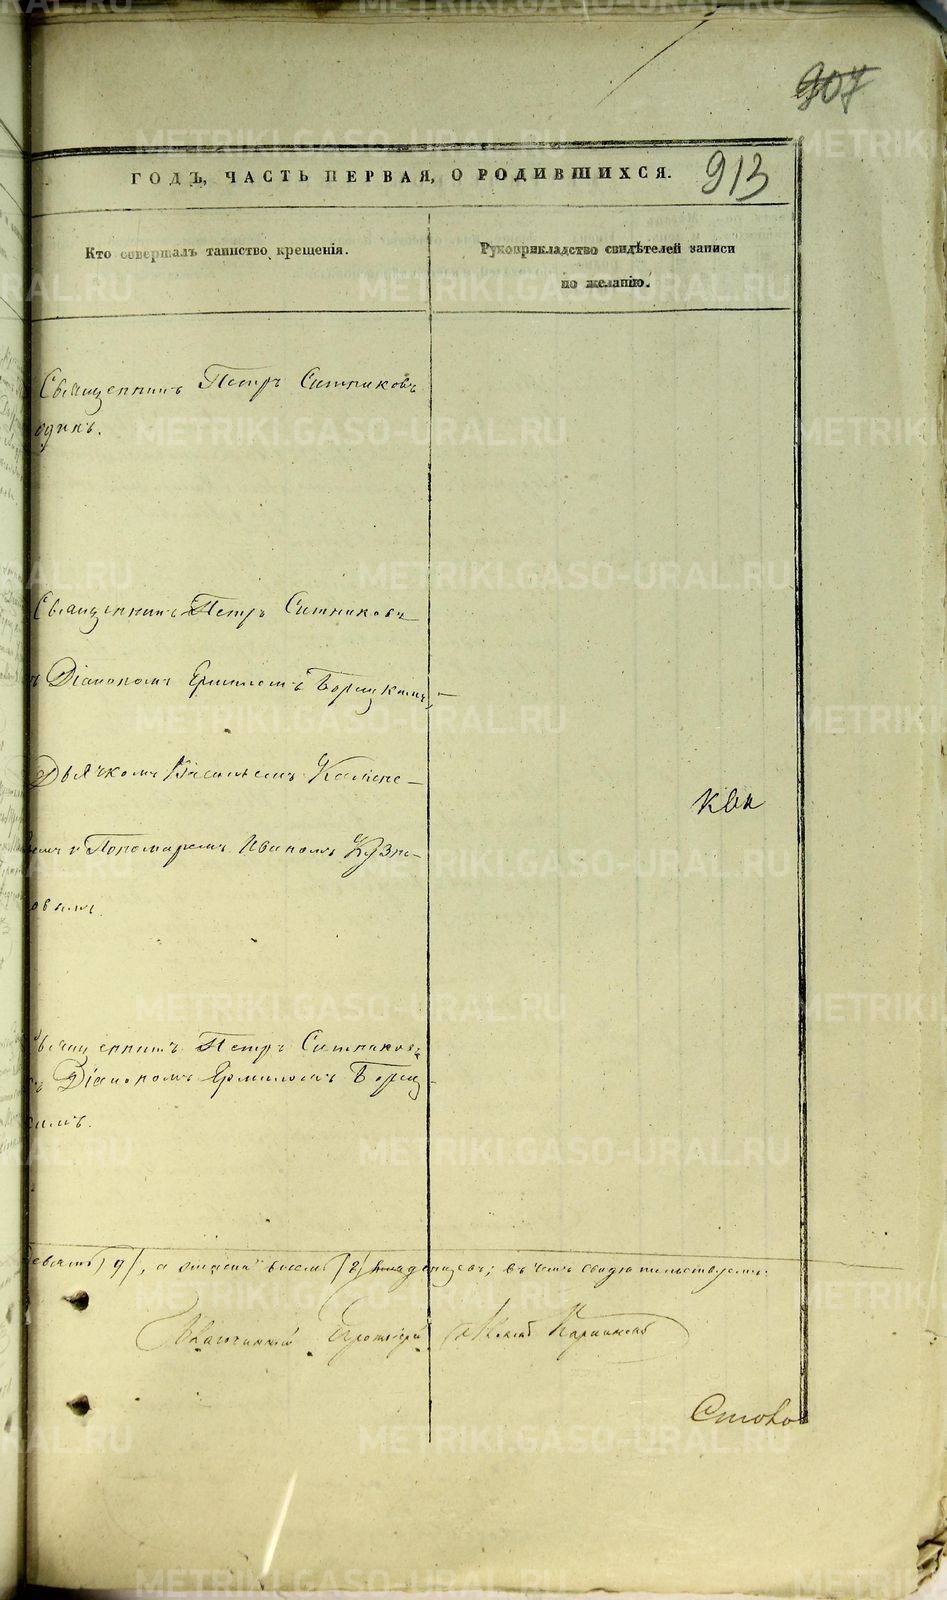 907
913
ГОДЪ, ЧАСТЬ ПЕРВАЯ, О РОДИВШИХСЯ.
Кто совершалъ таинство крещенія.
Рукоприкладство свидѣтелей записи
по желанію.
Священникъ Петръ Ситниковъ
одинъ.
Священникъ Петръ Ситниковъ
съ Діакономъ Ермиломъ Борицкимъ,
Дьячкомъ Васильемъ Камене-
и Пономаремъ Иваномъ Кузне-
Священникъ Петръ Ситниковъ
съ Діакономъ Ермиломъ Бориц-
кимъ.
девять /9/, а женска восемь /8/ младенцевъ; въ чемъ свидѣтельствуемъ:
Благочинный Протоіерей
METRIKI.GASO-URAL.RU